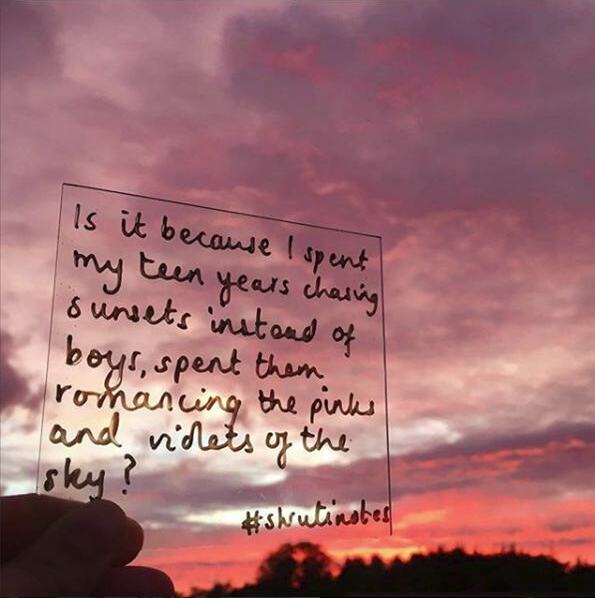 Is it because I spent
my teen years chasing
sunsets instead of
boys, spent them
romancing the pinks
and violets of the
sky?
#shrutinotes